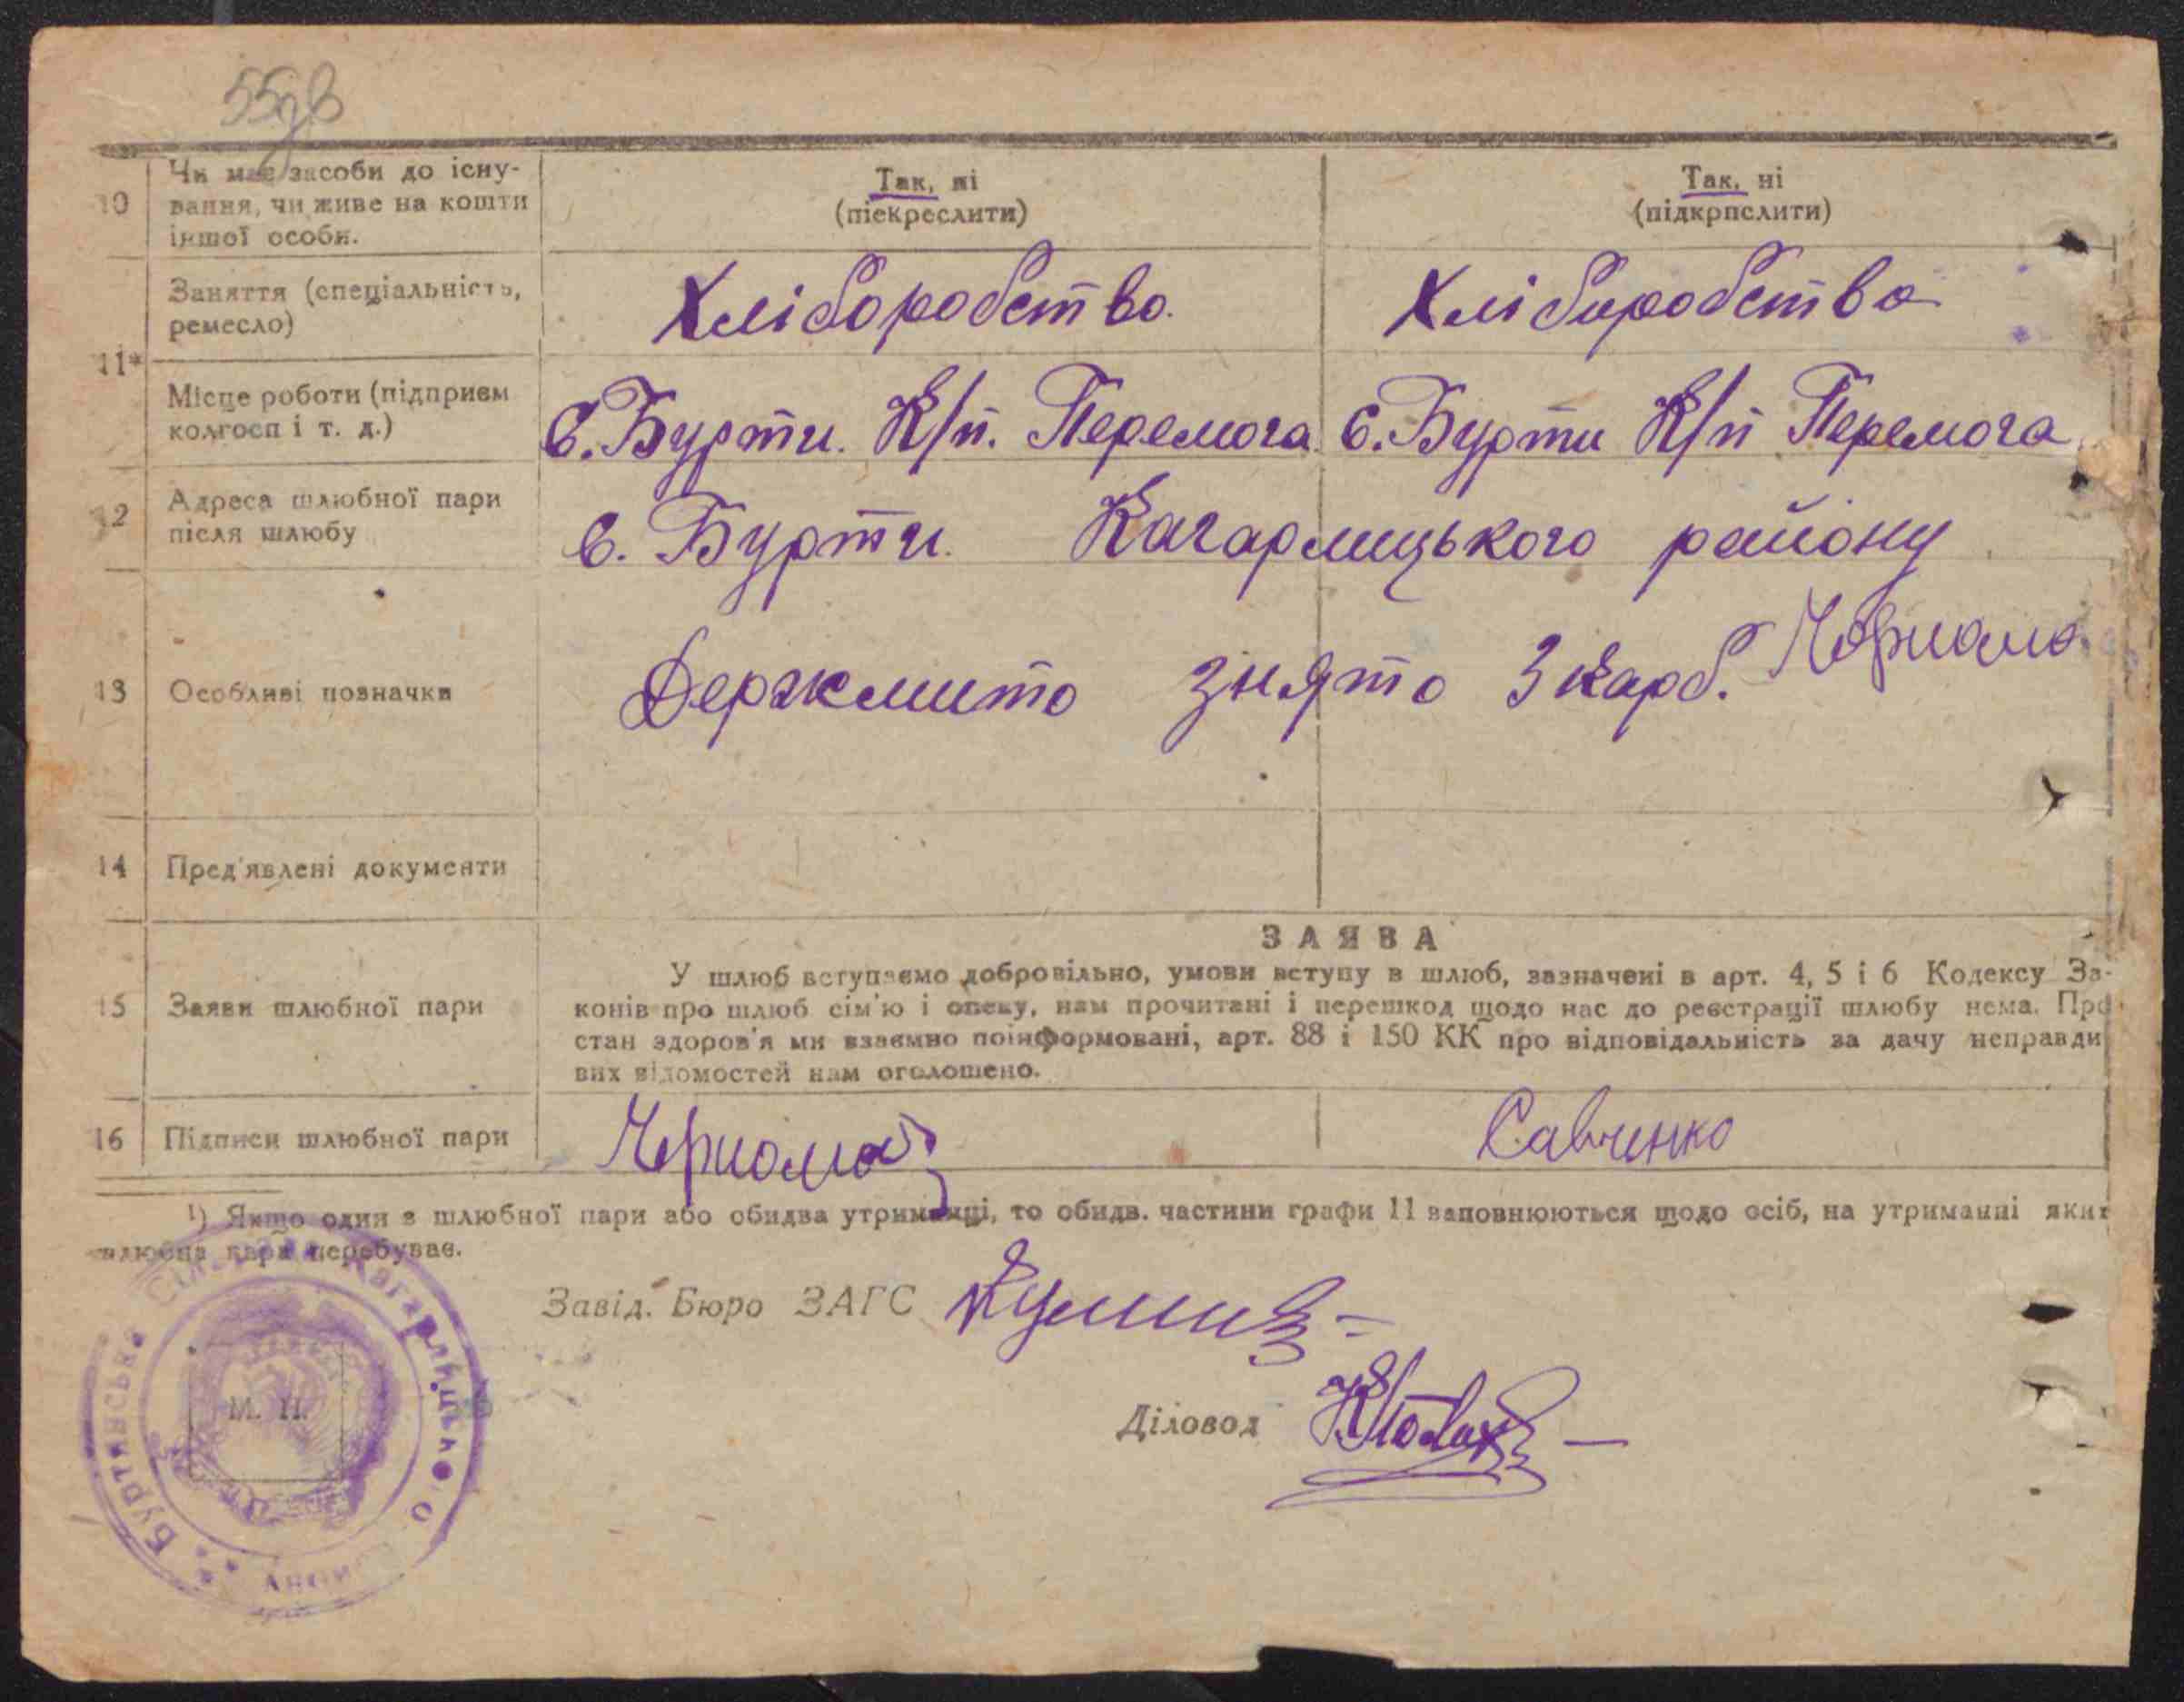 55
10 Чи має засоби до існу-
вання, чи живе на кошти
іншої особи.
Так, ні
(піекреслити)
Так, ні
(підкрпслити)
11*
Заняття (спеціальність,
ремесло)
Хліборобство.
Хліборобство
Місце роботи (підприєм
колгосп і т. д.)
с. Бурти. К/п. Перемога
с. Бурти К/п Перемога
12 Адреса шлюбної пари
після шлюбу
с. Бурти. Кагарлицького району
13 Особливі позначки
Держмито знято 3 карб.
14 Пред'явлені документи
15 Заяви шлюбної пари
ЗАЯВА
У шлюб вступаємо добровільно, умови вступу в шлюб, зазначені в арт. 4, 5 і 6 Кодексу За-
конів про шлюб сім'ю і опеку, нам прочитані і перешкод щодо нас до реєстрації шлюбу нема. Про
стан здоров'я ми взаємно поінформовані, арт. 88 і 150 КК про відповідальність за дачу неправди
вих відомостей нам оголошено.
16 Підписи шлюбної пари
Савченко
1) Якщо один з шлюбної пари або обидва утриманці, то обидв. частини графи 11 заповнюються щодо осіб, на утриманні яких
шлюбна пара перебуває.
Завід. Бюро ЗАГС
Діловод
М. П.
Буртянська
Кагарлицького